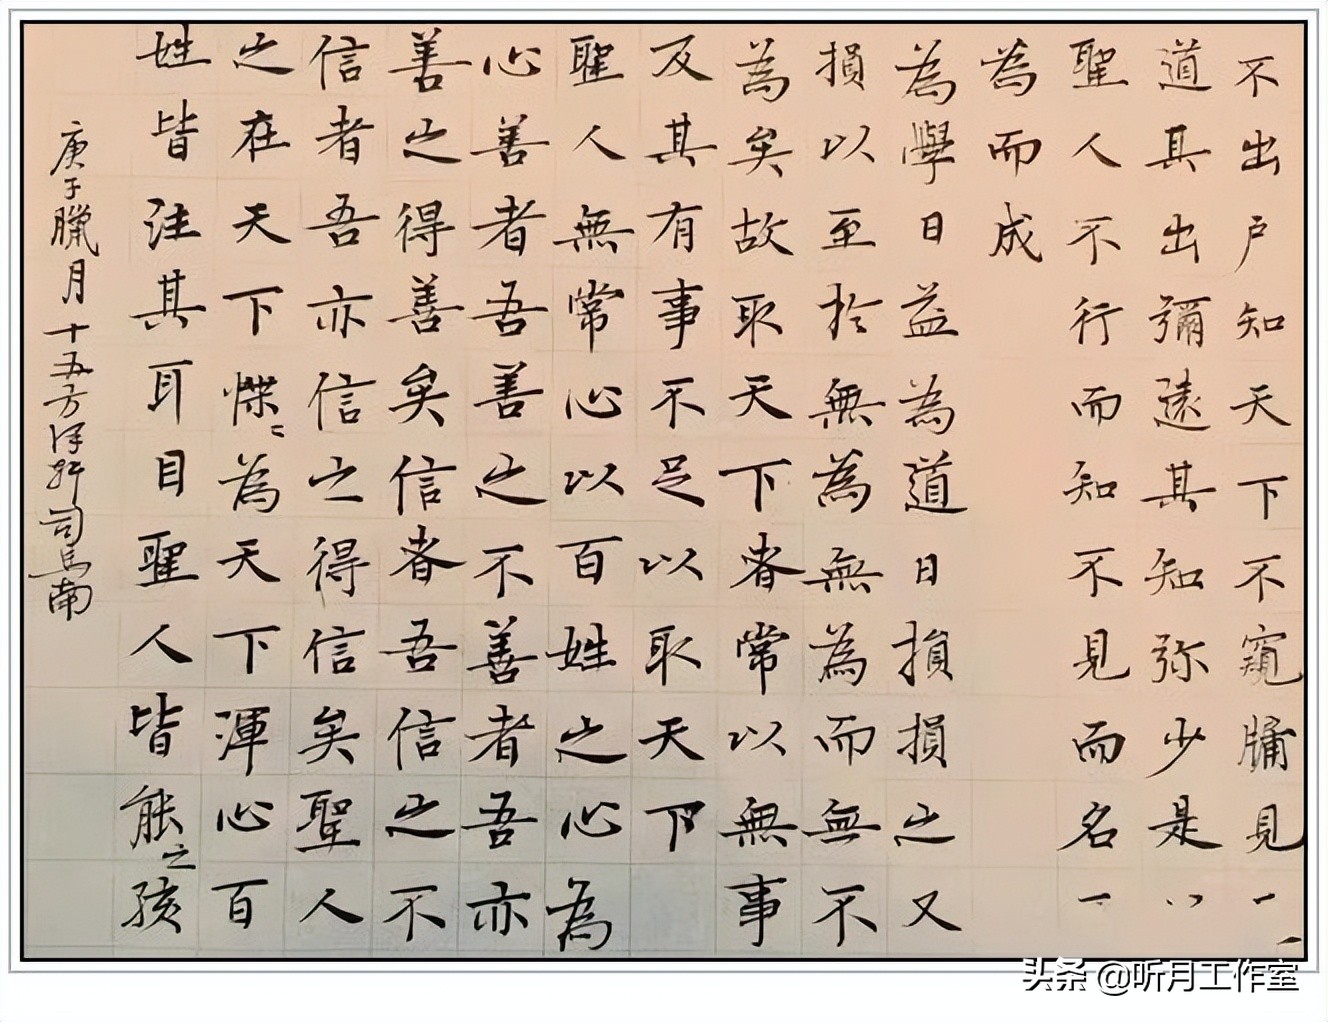 不出戶知天下不窺牖見一
道其出彌遠其知弥少是以
聖人不行而知不見而名一
為而成
為學日益為道日損損之又
損以至於無為無為而無不
為矣故取天下者常以無事
及其有事不足以取天下
聖人無常心以百姓之心為
心善者吾善之不善者吾亦
善之得善矣信者吾信之不
信者吾亦信之得信矣聖人
之在天下惵〻為天下渾心百
姓皆注其耳目聖人皆能之孩
庚子臘月十五方軒司馬南
头条 @听月工作室